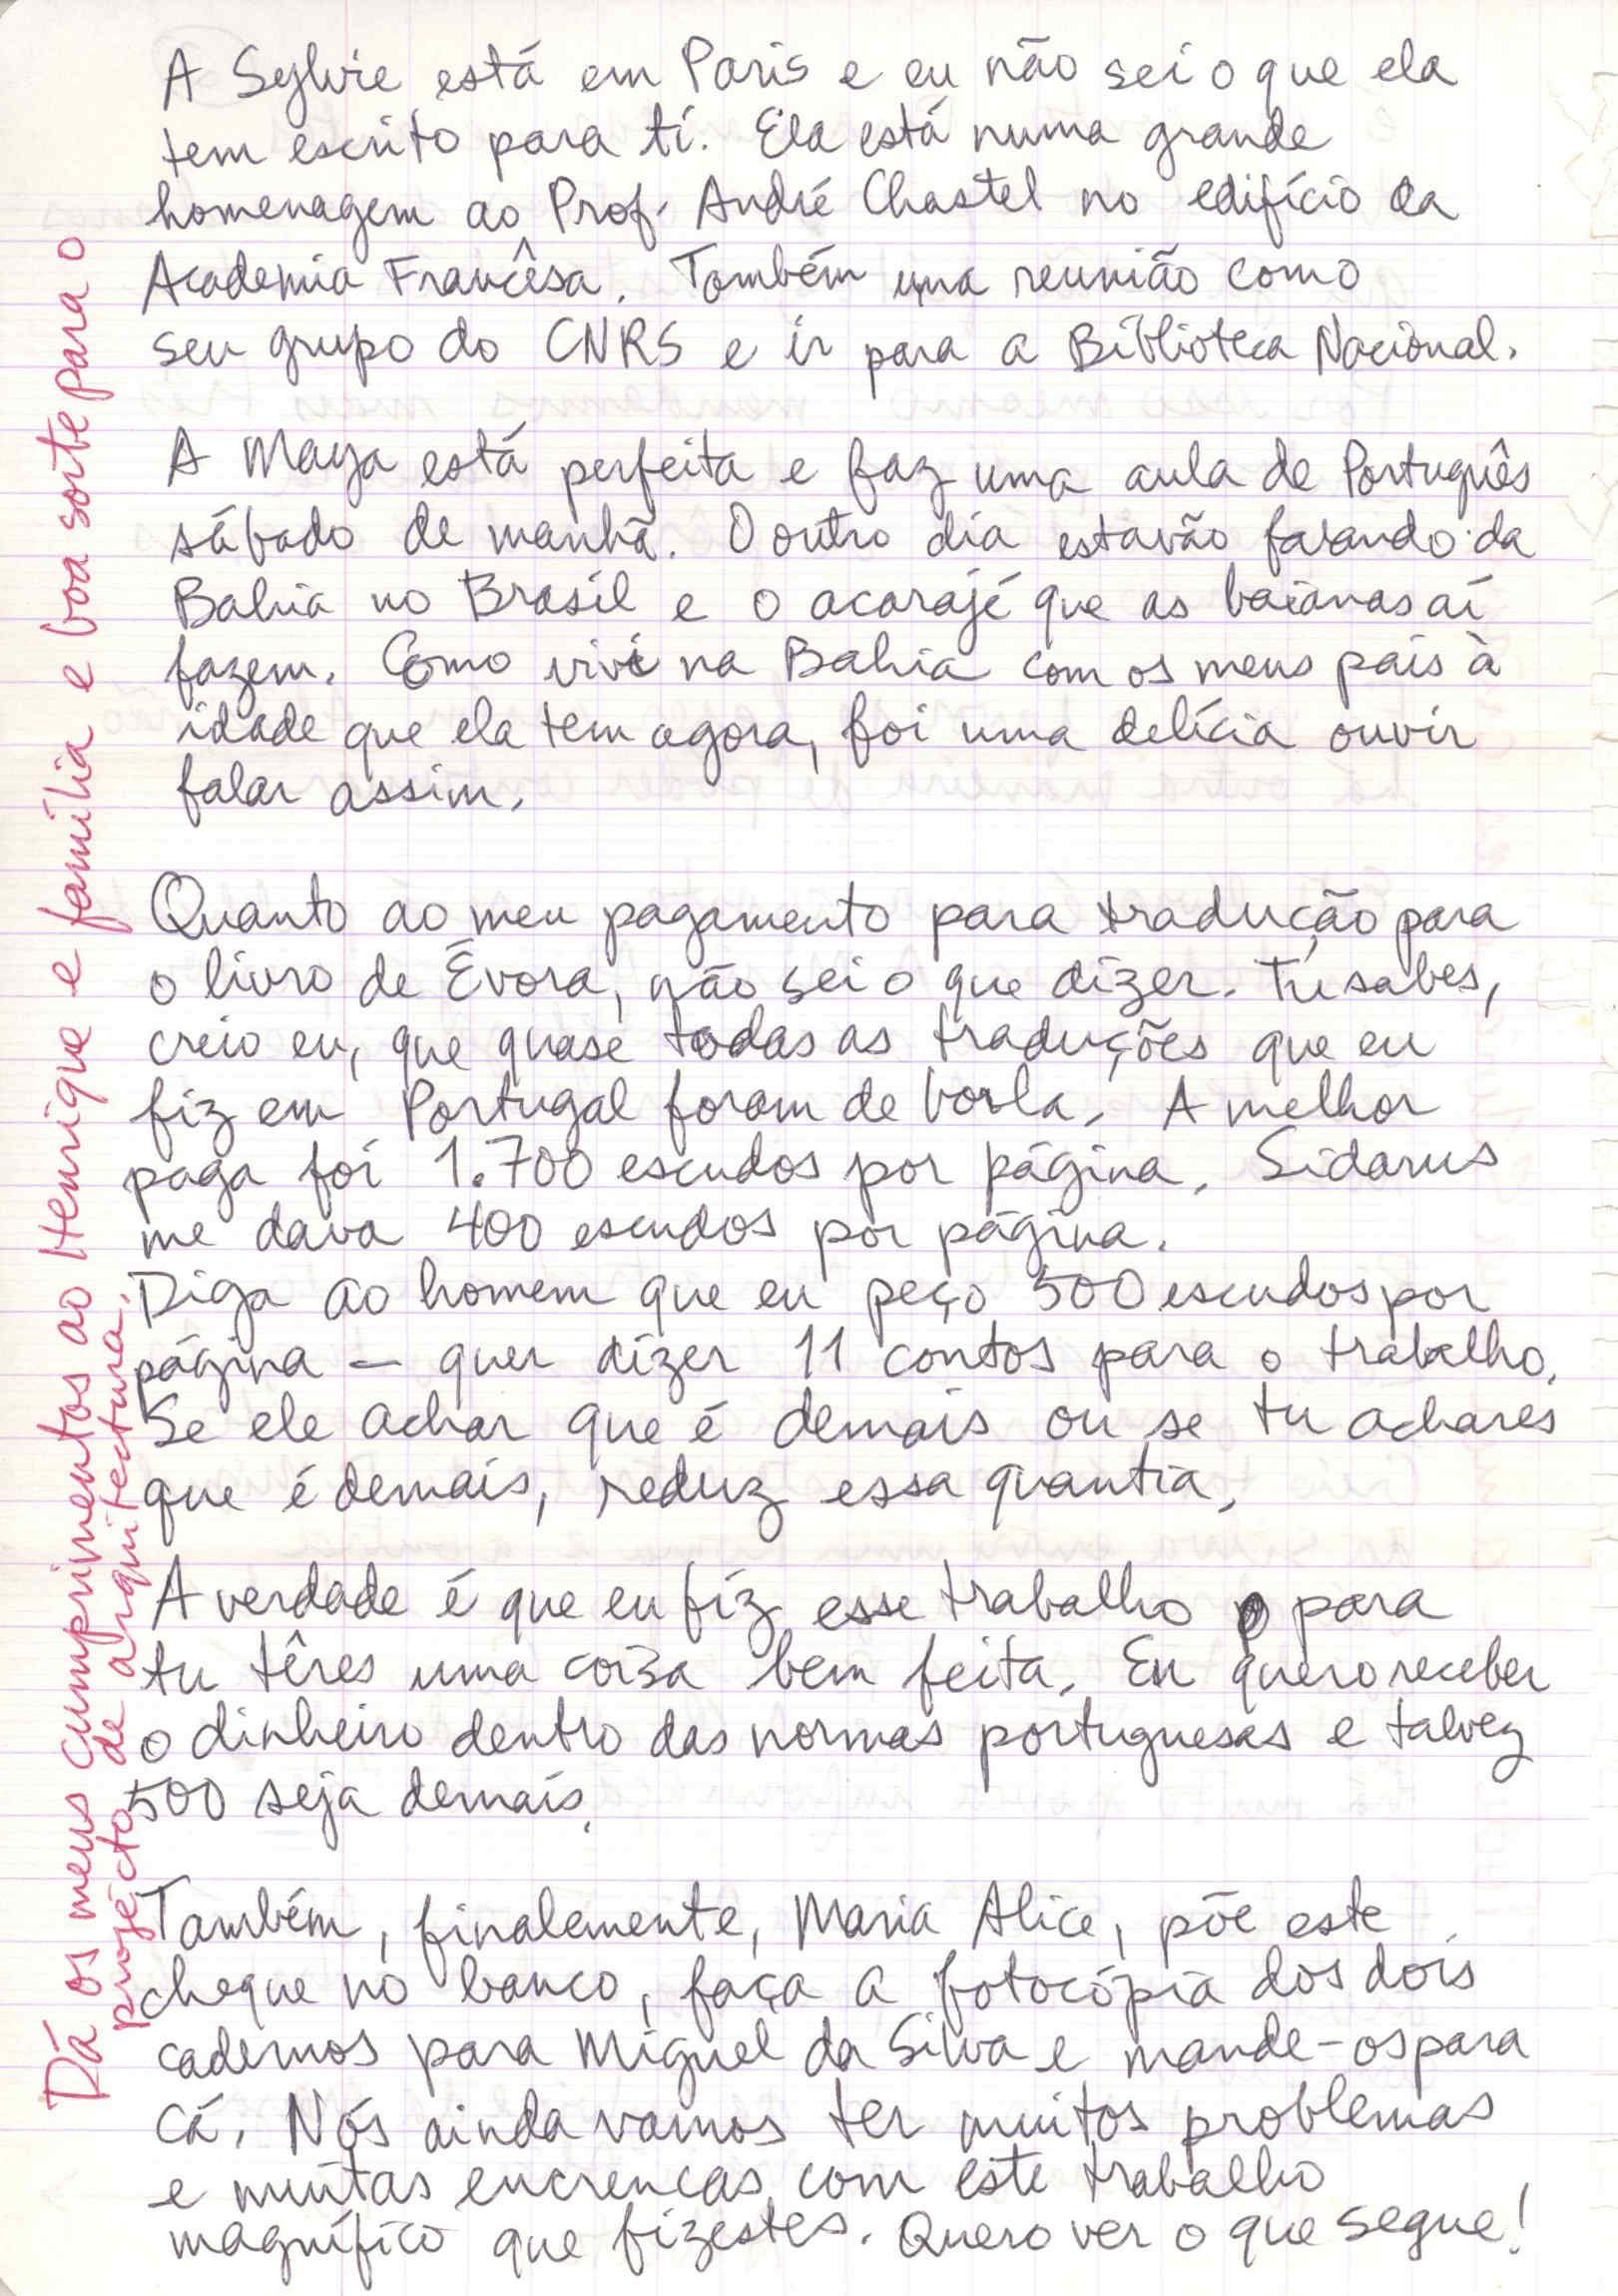 A Sylvie está em Paris e eu não sei o que ela
tem escrito para ti. Ela está numa grande
homenagem ao Prof. André Chastel no edifício da
Academia Francêsa. Também uma reunião como
seu grupo do CNRS e ir para a Biblioteca Nacional.
A Maya está perfeita e faz uma aula de Português
sábado de manhã. O outro dia estavão falando da
Bahia no Brasil e o acarajé que as baianas aí
fazem. Como vivi na Bahia com os meus pais à
idade que ela tem agora, foi uma delícia ouvir
falar assim.
Quanto ao meu pagamento para tradução para
o livro de Évora, não sei o que dizer. Tu sabes,
creio eu, que quase todas as traduções que eu
fiz em Portugal foram de borla. A melhor
paga foi 1.700 escudos por página. Sidarus
me dava 400 escudos por página.
Diga ao homem que eu peço 500 escudos por
página – quer dizer 11 contos para o trabalho.
Se ele achar que é demais ou se tu achares
que é demais, reduz essa quantia.
A verdade é que eu fiz esse trabalho para
tu têres uma coisa bem feita. Eu quero receber
o dinheiro dentro das normas portuguesas e talvez
500 seja demais.
Também, finalemente, Maria Alice, põe este
cheque no banco, faça a fotocópia dos dois
cadernos para Miguel da Silva e mande-os para
cá. Nós ainda vamos ter muitos problemas
e muitas encrencas com este trabalho
magnífico que fizestes. Quero ver o que segue!
Dá os meus cumprimentos ao Henrique e família e boa sorte para o
projécto de arquitectura.